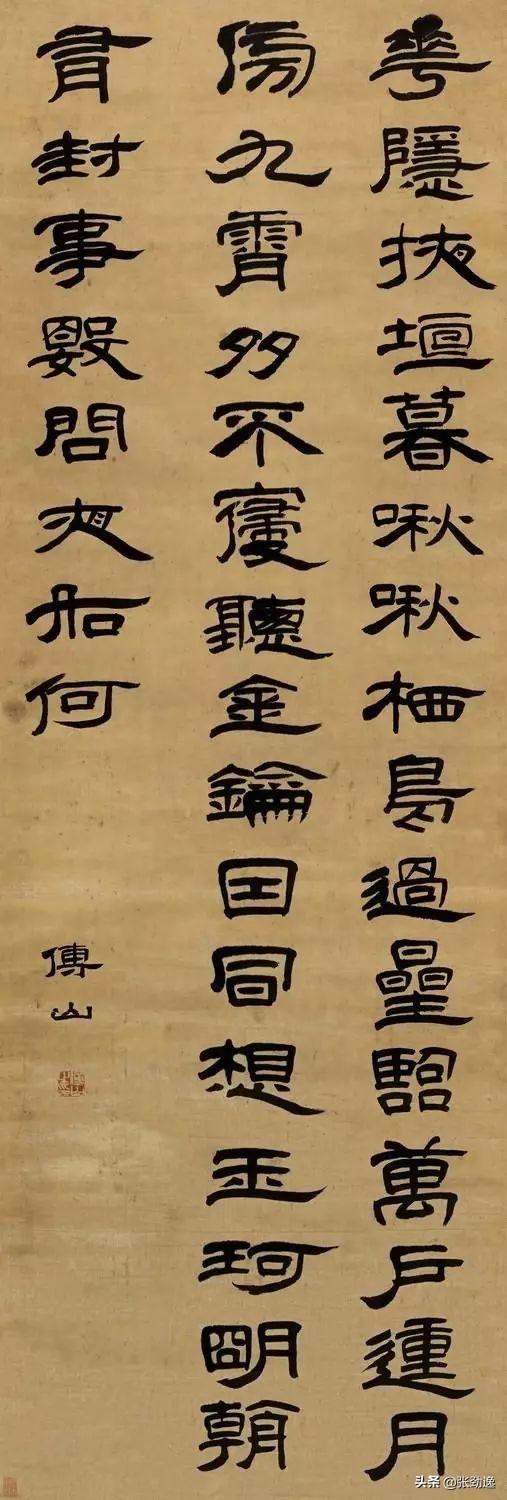 華隱掖垣暮啾啾栖鳥過星臨萬戶動月
傍九霄多不寢聽金鑰因風想玉珂明朝
有封事數問夜如何
傅山
头条 @张劲逸